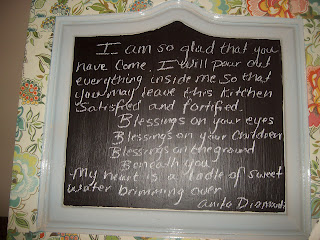 I am so glad that you
have come. I will pour out
everything inside me so that
you may leave this kitchen
Satisfied and fortified.
Blessings on your eyes
Blessings on your Children
Blessings on the ground
Beneath you.
My heart is a ladle of sweet
water brimming over
Anita Diamant